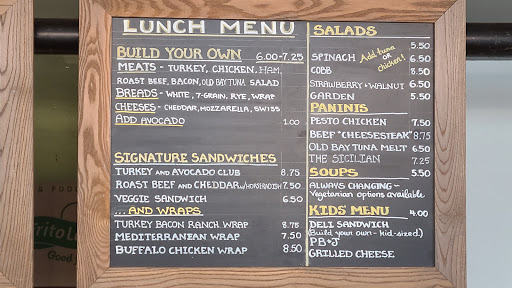 LUNCH MENU
BUILD YOUR OWN 6.00-7.25
MEATS - TURKEY, CHICKEN, HAM,
ROAST BEEF, BACON, OLD BAY TUNA SALAD
BREADS - WHITE, 7-GRAIN, RYE, WRAP
CHEESES - CHEDDAR, MOZZARELLA, SWISS
ADD AVOCADO 1.00
SIGNATURE SANDWICHES
TURKEY AND AVOCADO CLUB 8.75
ROAST BEEF AND CHEDDAR W/HORSERADISH 7.50
VEGGIE SANDWICH 6.50
...AND WRAPS
TURKEY BACON RANCH WRAP 8.75
MEDITERRANEAN WRAP 7.50
BUFFALO CHICKEN WRAP 8.50
SALADS
5.50
SPINACH Add tuna or chicken! 6.50
COBB 8.50
STRAWBERRY + WALNUT 6.50
GARDEN 5.50
PANINIS
PESTO CHICKEN 7.50
BEEF "CHEESESTEAK" 8.75
OLD BAY TUNA MELT 6.50
THE SICILIAN 7.25
SOUPS 5.50
ALWAYS CHANGING ~
Vegetarian options available
KIDS' MENU 4.00
DELI SANDWICH
(Build your own - kid-sized.)
PB+J
GRILLED CHEESE